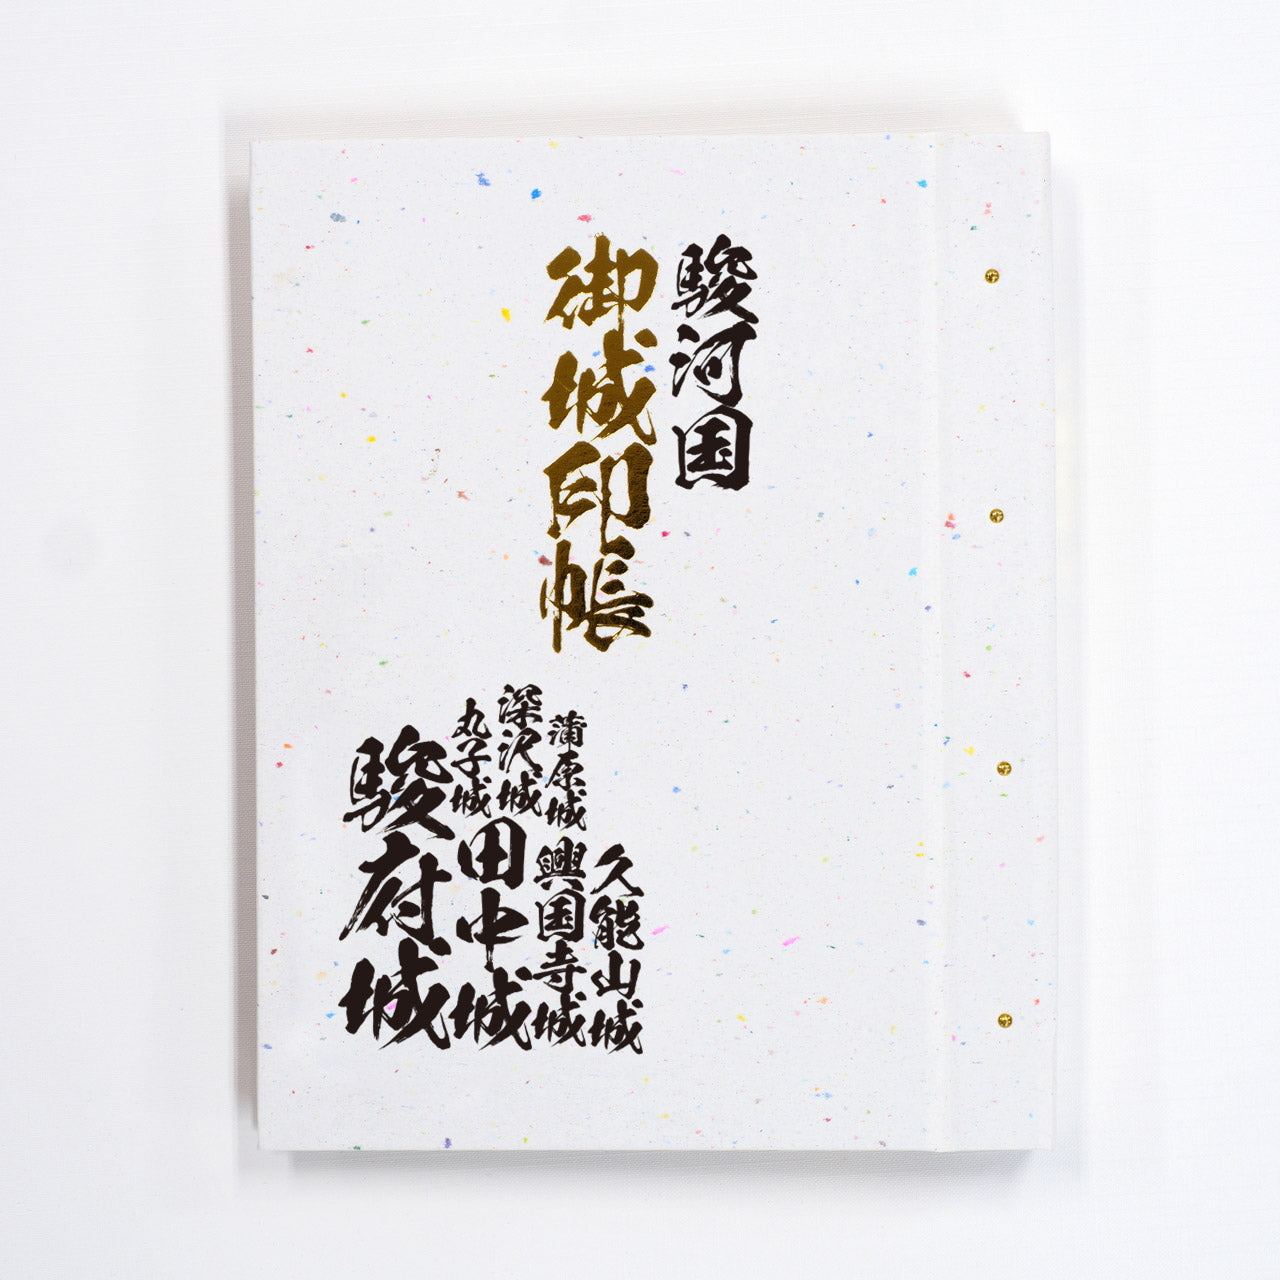 駿河国
御城印帳
久能山城
蒲原城
興国寺城
深沢城
田中城
丸子城
駿府城